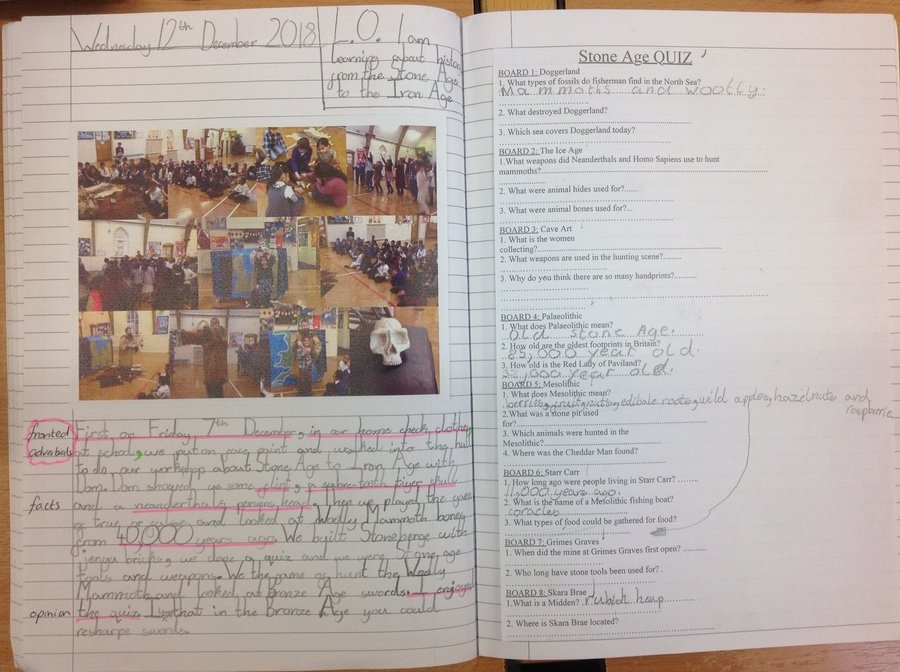 Wednesday 12th December 2018
L.O. I am
learning about history
from the Stone Age
to the Iron Age
fronted
adverbials
facts
opinion
First, on Friday, 7th December, in our home check clothes
at school, we put on face paint and walked into the hall
to do, our workshop about Stone Age to Iron Age with
Dom. Dom showed us some flint, a sabre-tooth tiger skull
and a neanderthal's persons head. Then we played the game
of true or false and looked at Woolly Mammoth bones
from 40,000 years ago. We built Stonehenge with
jenga bricks, we dope a quiz and we were Stone age
tools and weapons. We the game of hunt the Woolly
Mammoth and looked at Bronze Age swords. I enjoyed
the quiz. I that in the Bronze Age you could
resharpe swords.
Stone Age QUIZ
BOARD 1: Doggerland
1. What types of fossils do fisherman find in the North Sea?
Mammoths and woolly.
2. What destroyed Doggerland?
3. Which sea covers Doggerland today?
BOARD 2: The Ice Age
1.What weapons did Neanderthals and Homo Sapiens use to hunt
mammoths?
2. What were animal hides used for?
3. What were animal bones used for?
BOARD 3: Cave Art
1. What is the women
collecting?
2. What weapons are used in the hunting scene?
3. Why do you think there are so many handprints?
BOARD 4: Palaeolithic
1. What does Palaeolithic mean?
Old Stone Age.
2. How old are the oldest footprints in Britain?
85,000 year old.
3. How old is the Red Lady of Paviland?
000 year old.
BOARD 5: Mesolithic
1. What does Mesolithic mean?
berries, fruit, nuts, edibale roots, wild apples, hazelnuts and
raspberrie
2.What was a stone pit used
for?
3. Which animals were hunted in the
Mesolithic?
4. Where was the Cheddar Man found?
BOARD 6: Starr Carr
1. How long ago were people living in Starr Carr?
11,000 years ago.
2. What is the name of a Mesolithic fishing boat?
coracles
3. What types of food could be gathered for food?
BOARD 7: Grimes Graves
1. When did the mine at Grimes Graves first open?
2. Who long have stone tools been used for?
BOARD 8: Skara Brae
1.What is a Midden? rubish heap
2. Where is Skara Brae located?